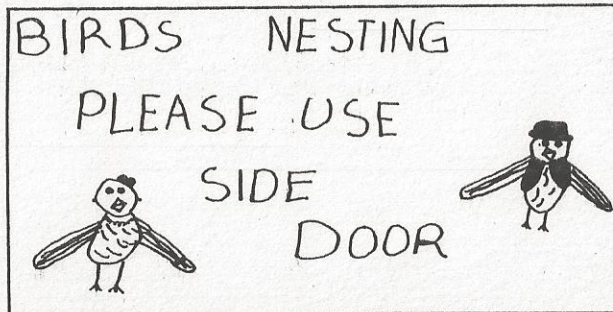 BIRDS NESTING
PLEASE USE
SIDE
DOOR